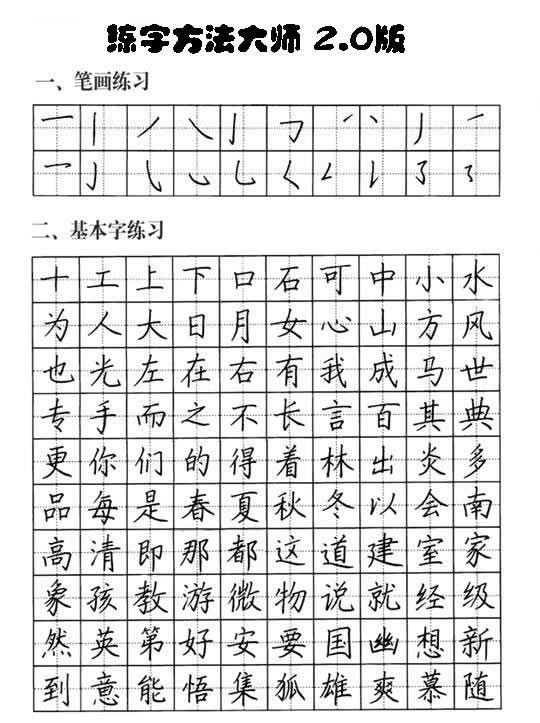 练字方法大师 2.0版
一、笔画练习
二、基本字练习
十工上下口石可中小水
为人大日月女心山方风
也光左在右有我成马世
专手而之不长言百其典
更你们的得着林出炎多
品每是春夏秋冬以会南
高清即那都这道建室家
象孩教游微物说就经级
然英第好安要国幽想新
到意能悟集狐雄爽慕随